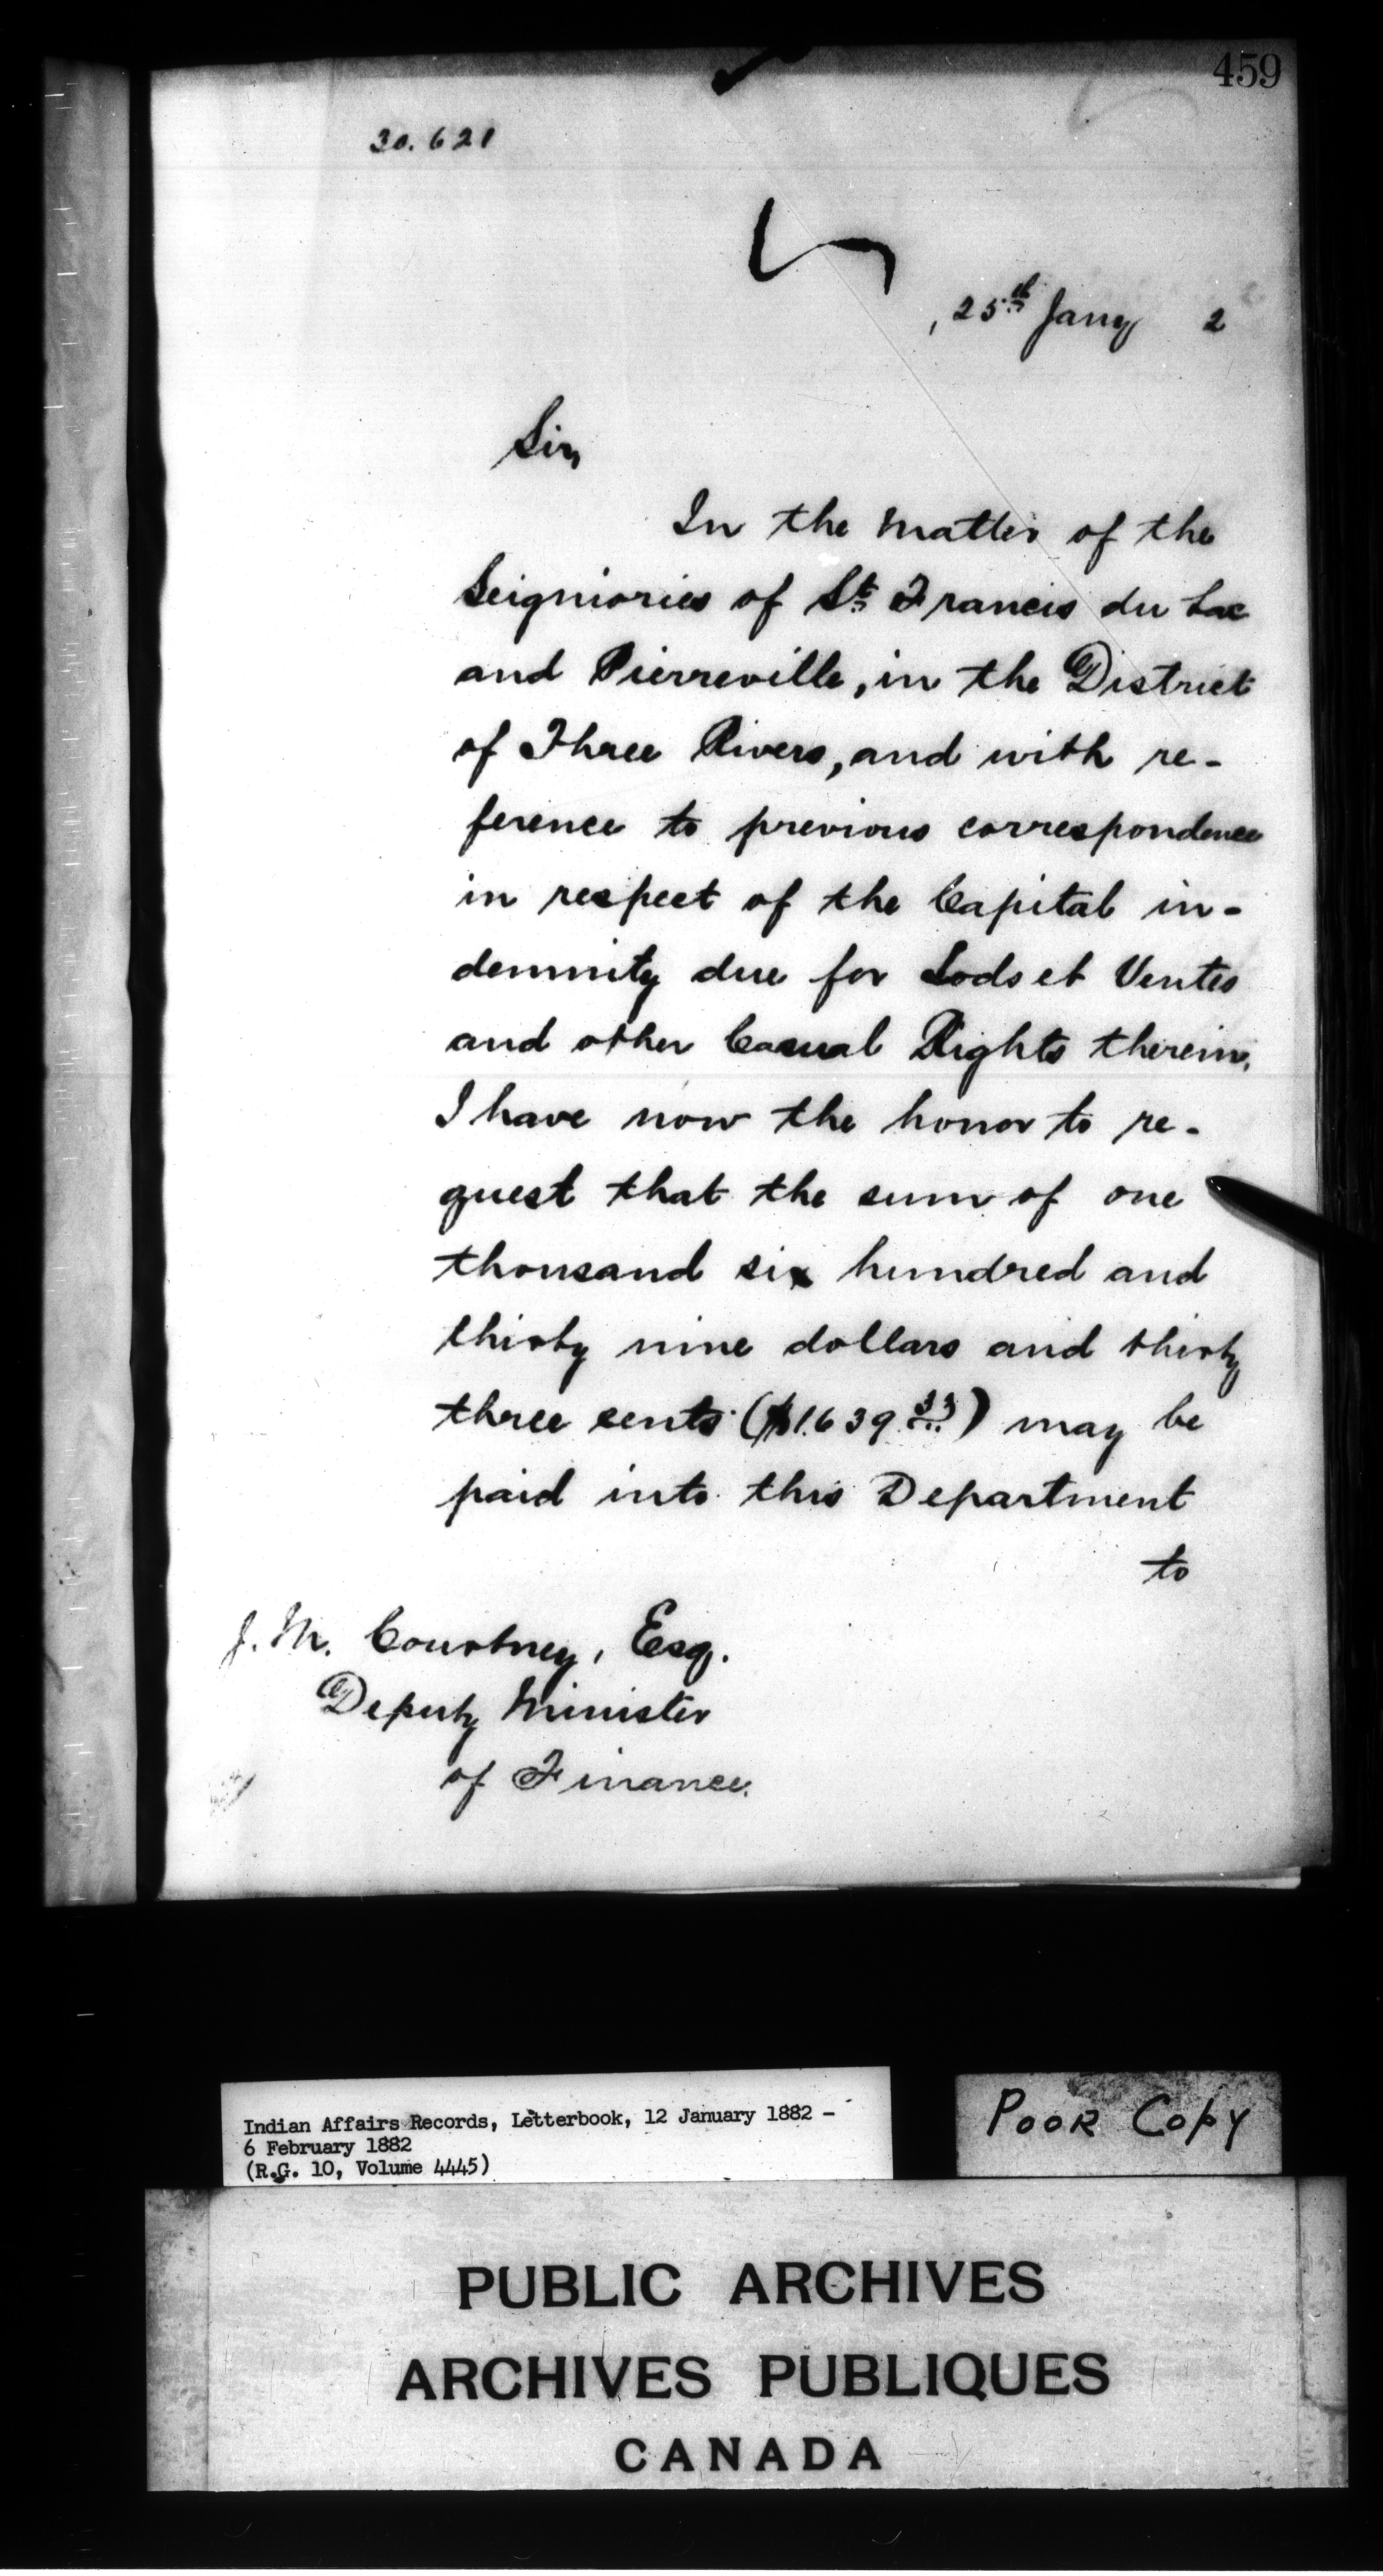 459
30.621
, 25th Jany 2
Sir,
In the matter of the
Seigniories of St. Francis du Lac
and Pierreville, in the District
of Three Rivers, and with re-
ference to previous correspondence
in respect of the Capital in-
demnity due for Lods et Ventes
and other Casual Rights therein,
I have now the honor to re-
quest that the sum of one
thousand six hundred and
thirty nine dollars and thirty
three cents ($1.639.33) may be
paid into this Department
to
J. M. Courtney, Esq.
Deputy Minister
of Finance.
Indian Affairs Records, Letterbook, 12 January 1882 -
6 February 1882
(R.G. 10, Volume 4445)
POOR COPY
PUBLIC ARCHIVES
ARCHIVES PUBLIQUES
CANADA